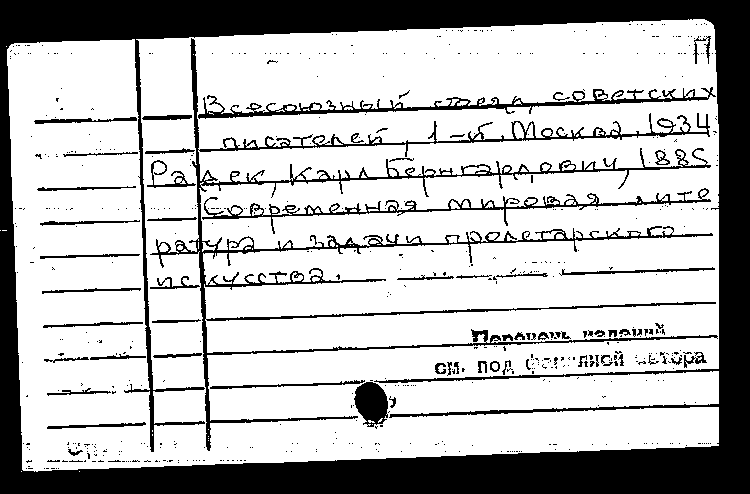 П
Всесоюзный съезд советских
писателей, 1-й. Москва. 1934
Радек, Карл Бернгардович, 1885
Современная мировая лите
ратура и задачи пролетарского
искусства.
Перечень изданий
см. под фамилией автора